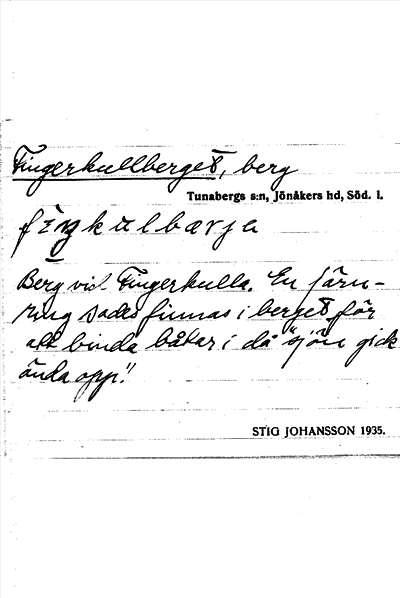 Fingerkullberget, berg
Tunabergs s:n, Jönåkers hd, Söd. l.
fiŋkulbærja
Berg vid Fingerkulla. En järn-
ring sades finnas i berget för
att binda båtar i då "sjön gick
ända opp".
STIG JOHANSSON 1935.